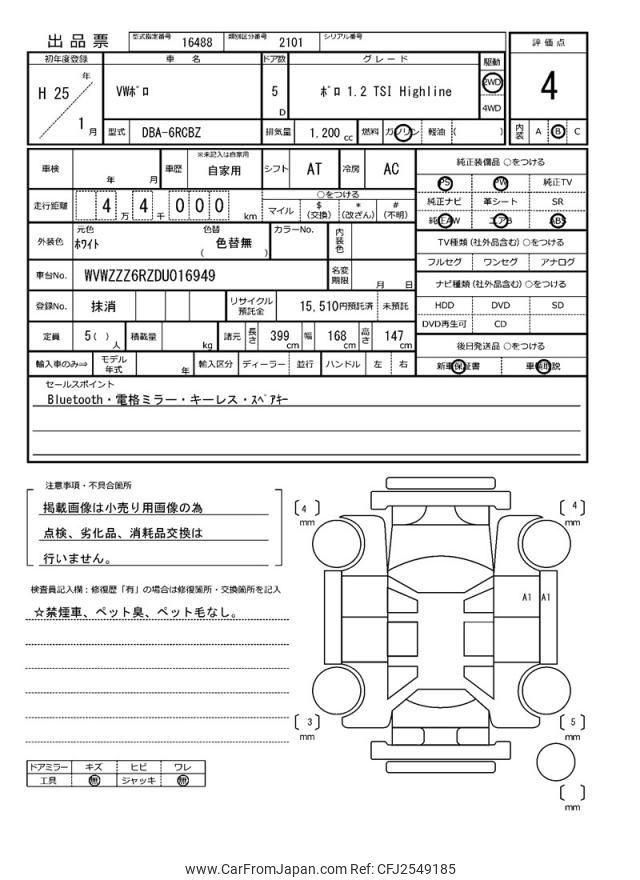 出品票 型式指定番号 16488 類別区分番号 2101 シリアル番号
評価点
4
内装 A B C
初年度登録 車名 ドア数 グレード 駆動
H 25 年 1 月 VWﾎﾟﾛ 5 D ﾎﾟﾛ 1.2 TSI Highline 2WD 4WD
型式 DBA-6RCBZ 排気量 1,200 cc 燃料 ガソリン 軽油 ( )
車検 年 月 車歴 ※未記入は自家用 自家用 シフト AT 冷房 AC
走行距離 4 万 4 千 0 0 0 km
○をつける
マイル $ (交換) * (改ざん) # (不明)
外装色 元色 ﾎﾜｲﾄ 色替 ( 色替無 ) カラーNo. 内装色
車台No. WVWZZZ6RZDU016949 名変期限 月 日
登録No. 抹消 リサイクル預託金 15,510円預託済 未預託
定員 5( ) 人 積載量 kg 諸元 長さ 399 cm 幅 168 cm 高さ 147 cm
輸入車のみ⇒ モデル年式 年 輸入区分 ディーラー 並行 ハンドル 左 右
純正装備品 ○をつける
PS PW 純正TV
純正ナビ 革シート SR
純正AW エアB ABS
TV種類(社外品含む)○をつける
フルセグ ワンセグ アナログ
ナビ種類(社外品含む)○をつける
HDD DVD SD
DVD再生可 CD
後日発送品 ○をつける
新車保証書 車輌取説
セールスポイント
Bluetooth・電格ミラー・キーレス・ｽﾍﾟｱｷｰ
注意事項・不具合箇所
掲載画像は小売り用画像の為
点検、劣化品、消耗品交換は
行いません。
検査員記入欄：修復歴「有」の場合は修復箇所・交換箇所を記入
☆禁煙車、ペット臭、ペット毛なし。
ドアミラー キズ ヒビ ワレ
工具 無 ジャッキ 無
4 mm
4 mm
A1 A1
3 mm
5 mm
mm
www.CarFromJapan.com Ref: CFJ2549185